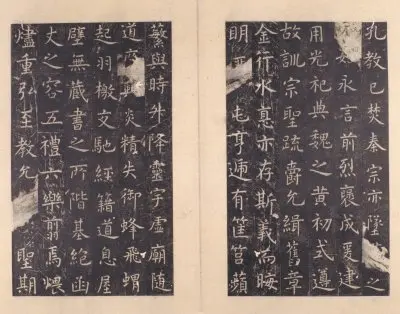 孔教已焚秦宗亦墜之
始永言前烈褒成爰建
用光祀典魏之黃初式遵
故訓宗聖疏爵允緝舊章
金行水悳亦存斯義而晦
明匪屯亨遞有筐筥蘋
蘩與時升降靈宇虛廟隨
道廢炎精失御蜂飛蝟
起羽檄交馳經籍道息屋
壁無藏書之所階基絕函
丈之容五禮六樂翦焉煨
燼重弘至教允聖期